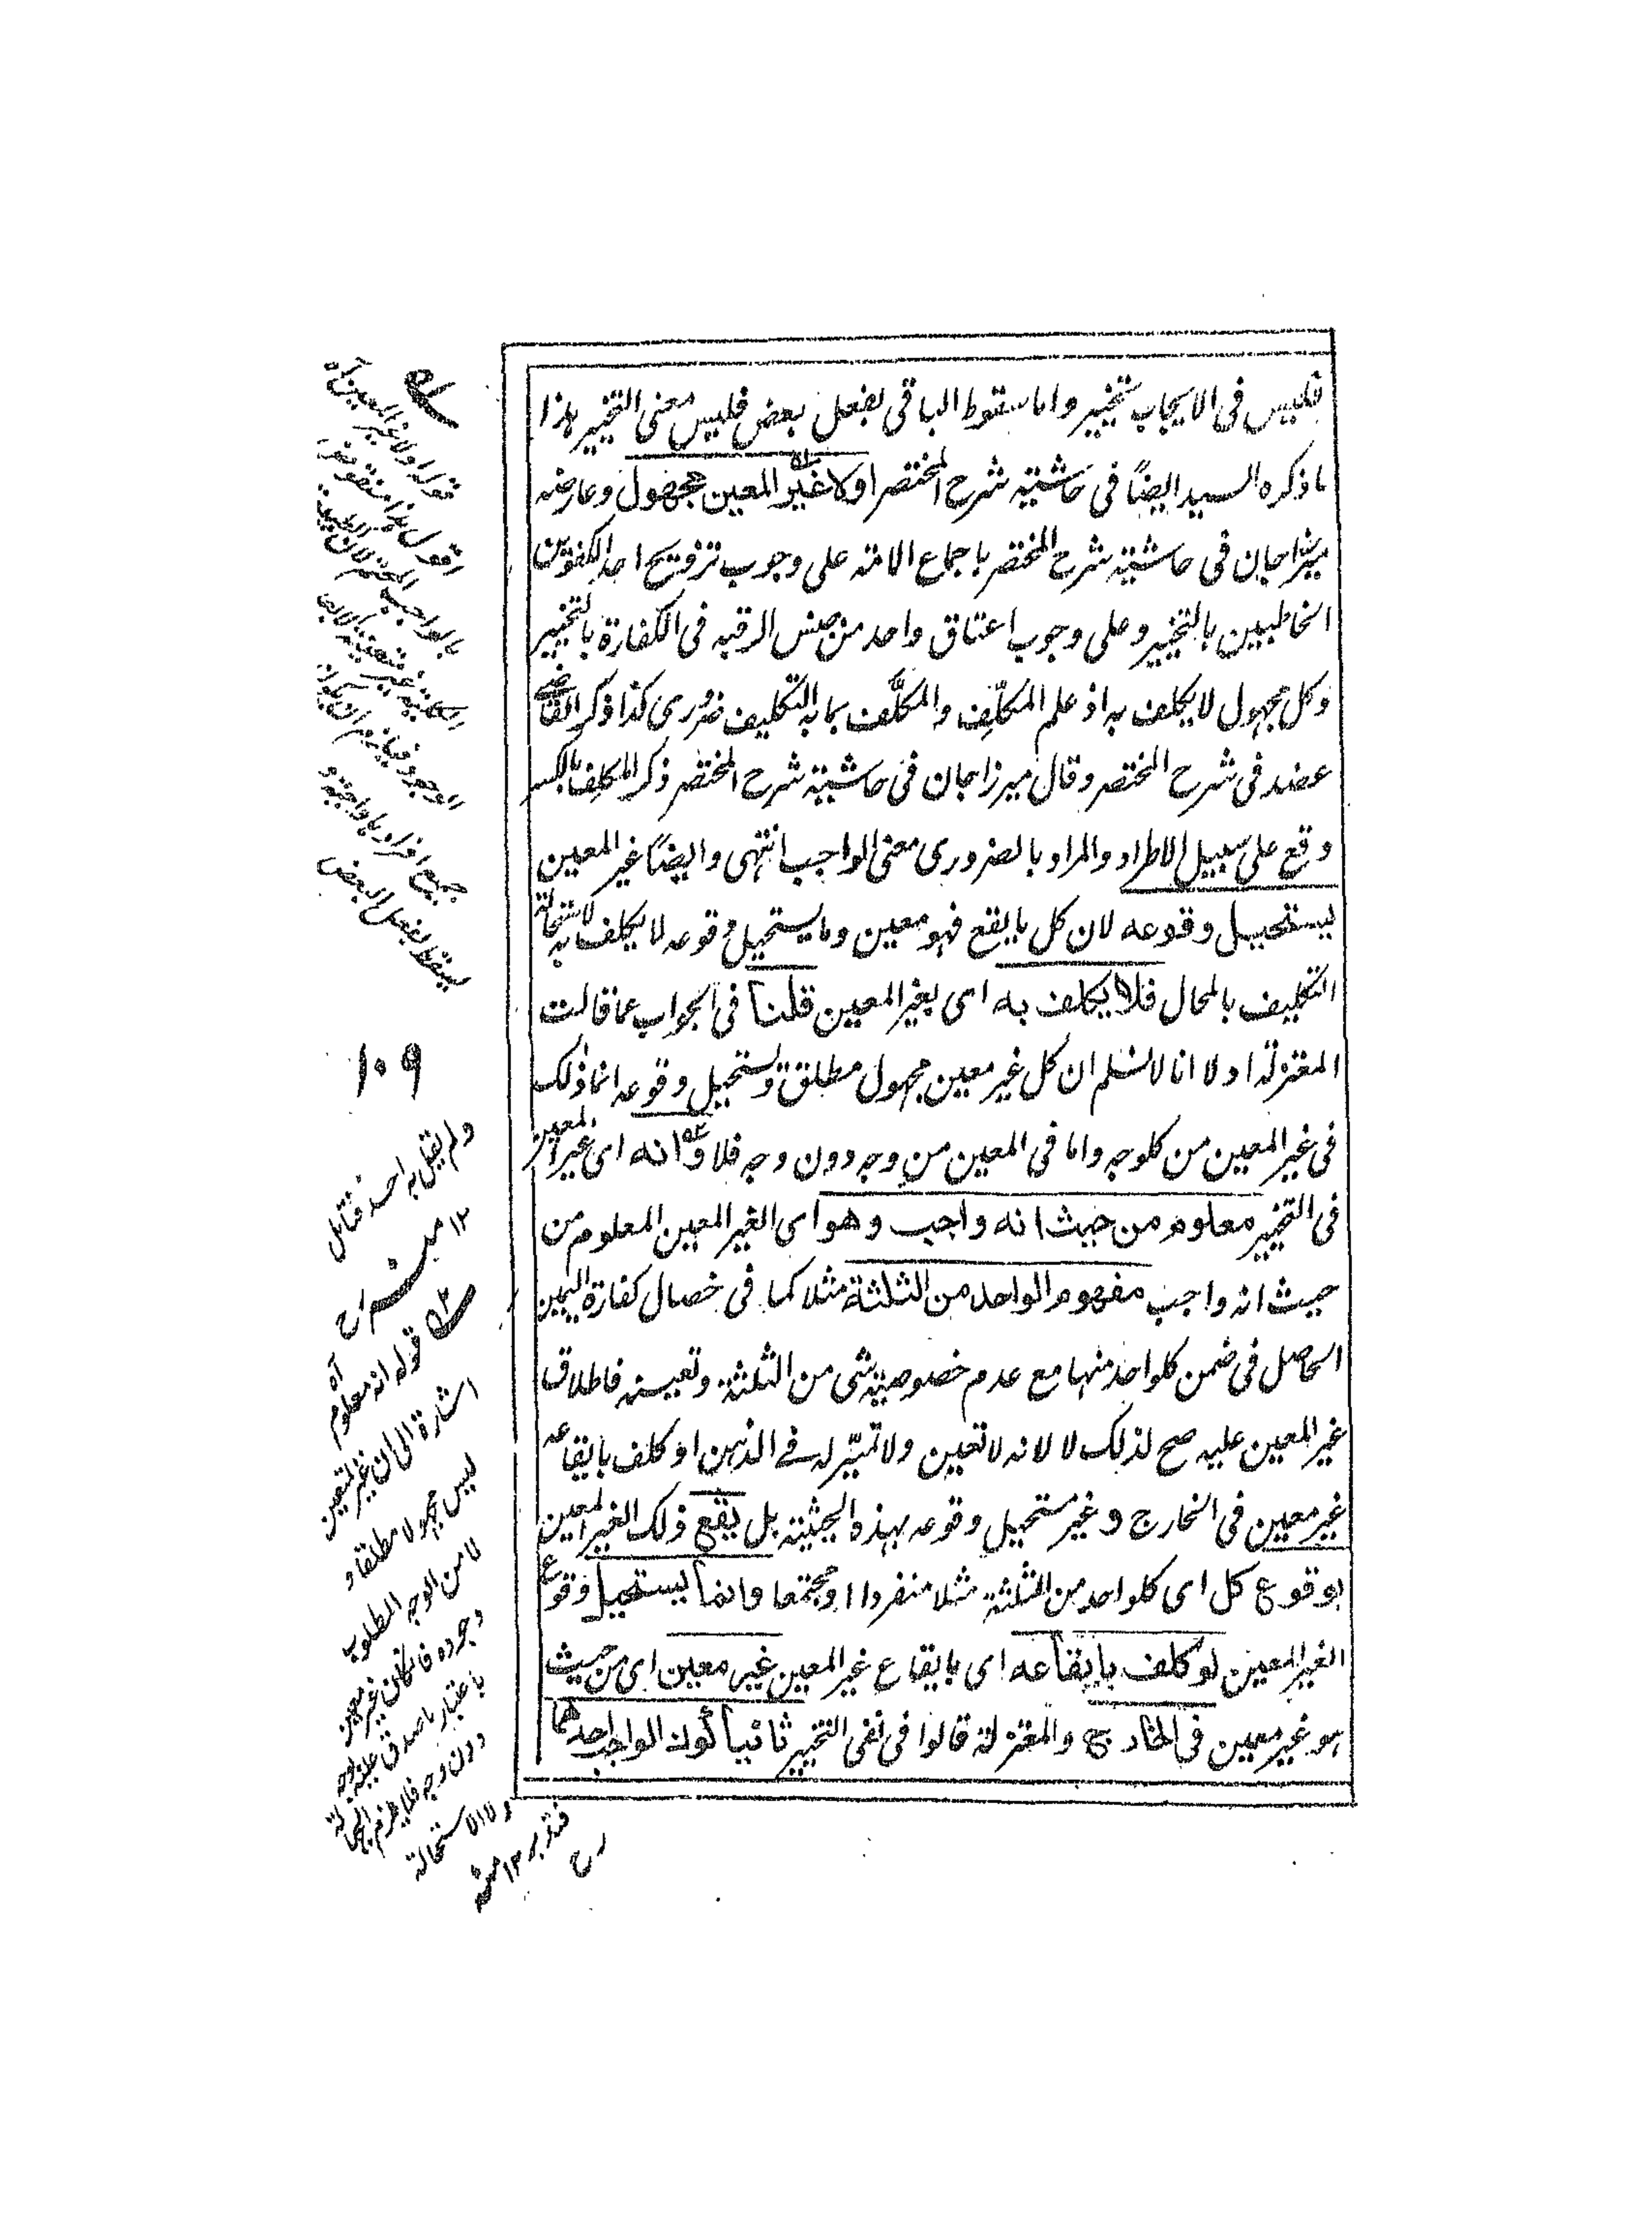 فليس فى الايجاب تخيير واما سقوط الباقى بفعل بعض فليس معنى التخيير هذا
ما ذكره السيد ايضًا فى حاشية شرح المختصر اولا غير المعين مجهول وعارضه
ميرزاجان فى حاشية شرح المختصر باجماع الامة على وجوب تزويج احد الكفوين
الخاطبين بالتخيير وعلى وجوب اعتاق واحد من جنس الرقبه فى الكفارة بالتخيير
وكل مجهول لا يكلف به اذ علم المكلِّف والمكلَّف بما به التكليف ضرورى كذا ذكر القاضى
عضد فى شرح المختصر وقال ميرزاجان فى حاشية شرح المختصر ذكر المكلف بالكسر
وقع على سبيل الاطراد والمراد بالضرورى معنى الواجب انتهى وايضًا غير المعين
يستحيل وقوعه لان كل ما يقع فهو معين وما يستحيل وقوعه لا يكلف به لاستحالة
التكليف بالمحال فلا يكلف به اى بغير المعين قلنا فى الجواب عما قالت
المعتزلة اولا انا لا نسلم ان كل غير معين مجهول مطلقا ويستحيل وقوعه انما ذلك
فى غير المعين من كلوجه واما فى المعين من وجه دون وجه فلا وانه اى غير المعين
فى التخيير معلوم من حيث انه واجب وهو اى الغير المعين المعلوم من
حيث انه واجب مفهوم الواحد من الثلثة مثلا كما فى خصال كفارة اليمين
الحاصل فى ضمن كلواحد منها مع عدم خصوصية شى من الثلثة وتعيينه فاطلاق
غير المعين عليه صح لذلك لا لانه لا تعين ولا تميّز له فى الذهن او كلف بايقاعه
غير معين فى الخارج وغير مستحيل وقوعه بهذه الحيثية بل يقع ذلك الغير المعين
بوقوع كل اى كلواحد من الثلثة مثلا منفردا او مجتمعا وانما يستحيل وقوع
الغير المعين لو كلف بايقاعه اى بايقاع غير المعين غير معين اى من حيث
هو غير معين فى الخارج والمعتزلة قالوا فى نفى التخيير ثانيا لوكان الواجب احدهما
قوله اولا غير المعين آه
اقول هذا منقوض
بالواجب
الوجود فيلزم ان يكون
جميع افراده واجبة و
يسقط بفعل البعض
١٠٩
ولم يقل به احد فتأمل
١٢ منه رح
قوله انه معلوم آه
اشارة الى ان غير المعين
ليس مجهولا مطلقا و
لا من الوجه المطلوب
وجوده فانه كان غير معين
باعتبار ما صدق عليه بوجه
دون وجه فلا يلزم الجهالة
ولا الاستحالة
فتدبر ١٢ منه
رح